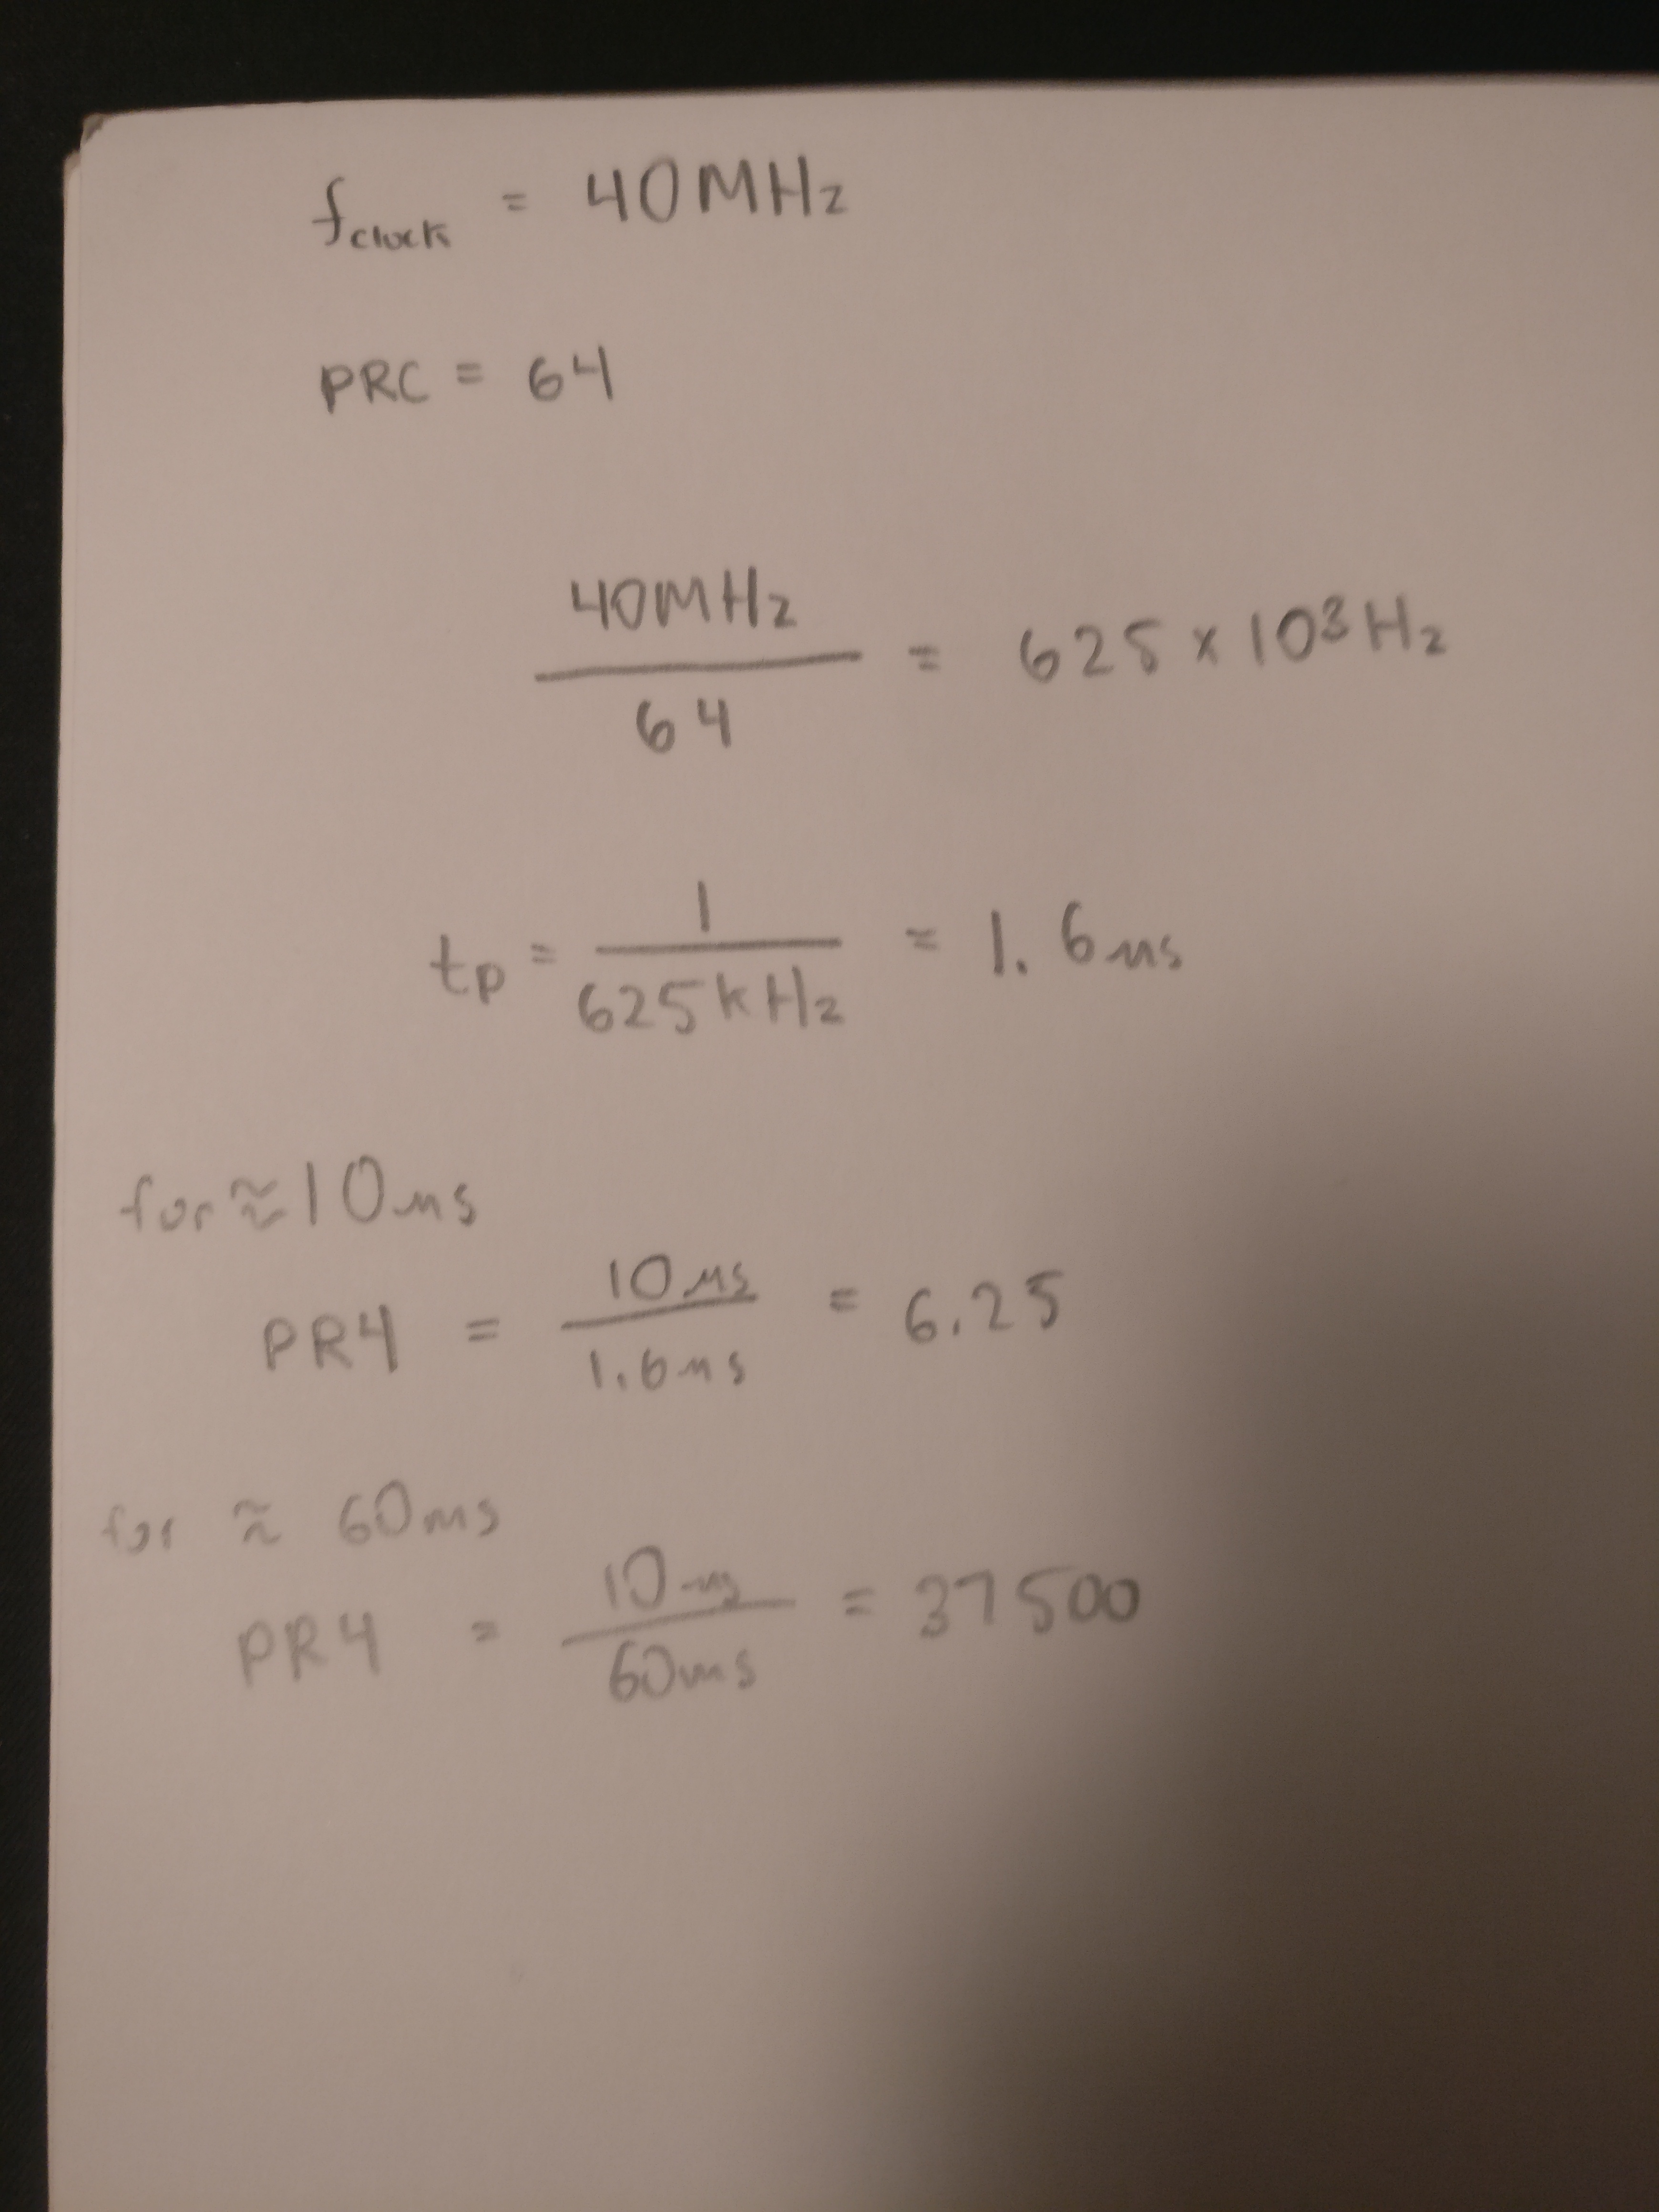 fclock = 40MHz
PRC = 64
40MHz
64
= 625 x 10³Hz
tp = 1 / 625kHz = 1.6us
for ≈ 10us
PR4 = 10us / 1.6us = 6.25
for ≈ 60ms
PR4 = 10us / 60ms = 37500